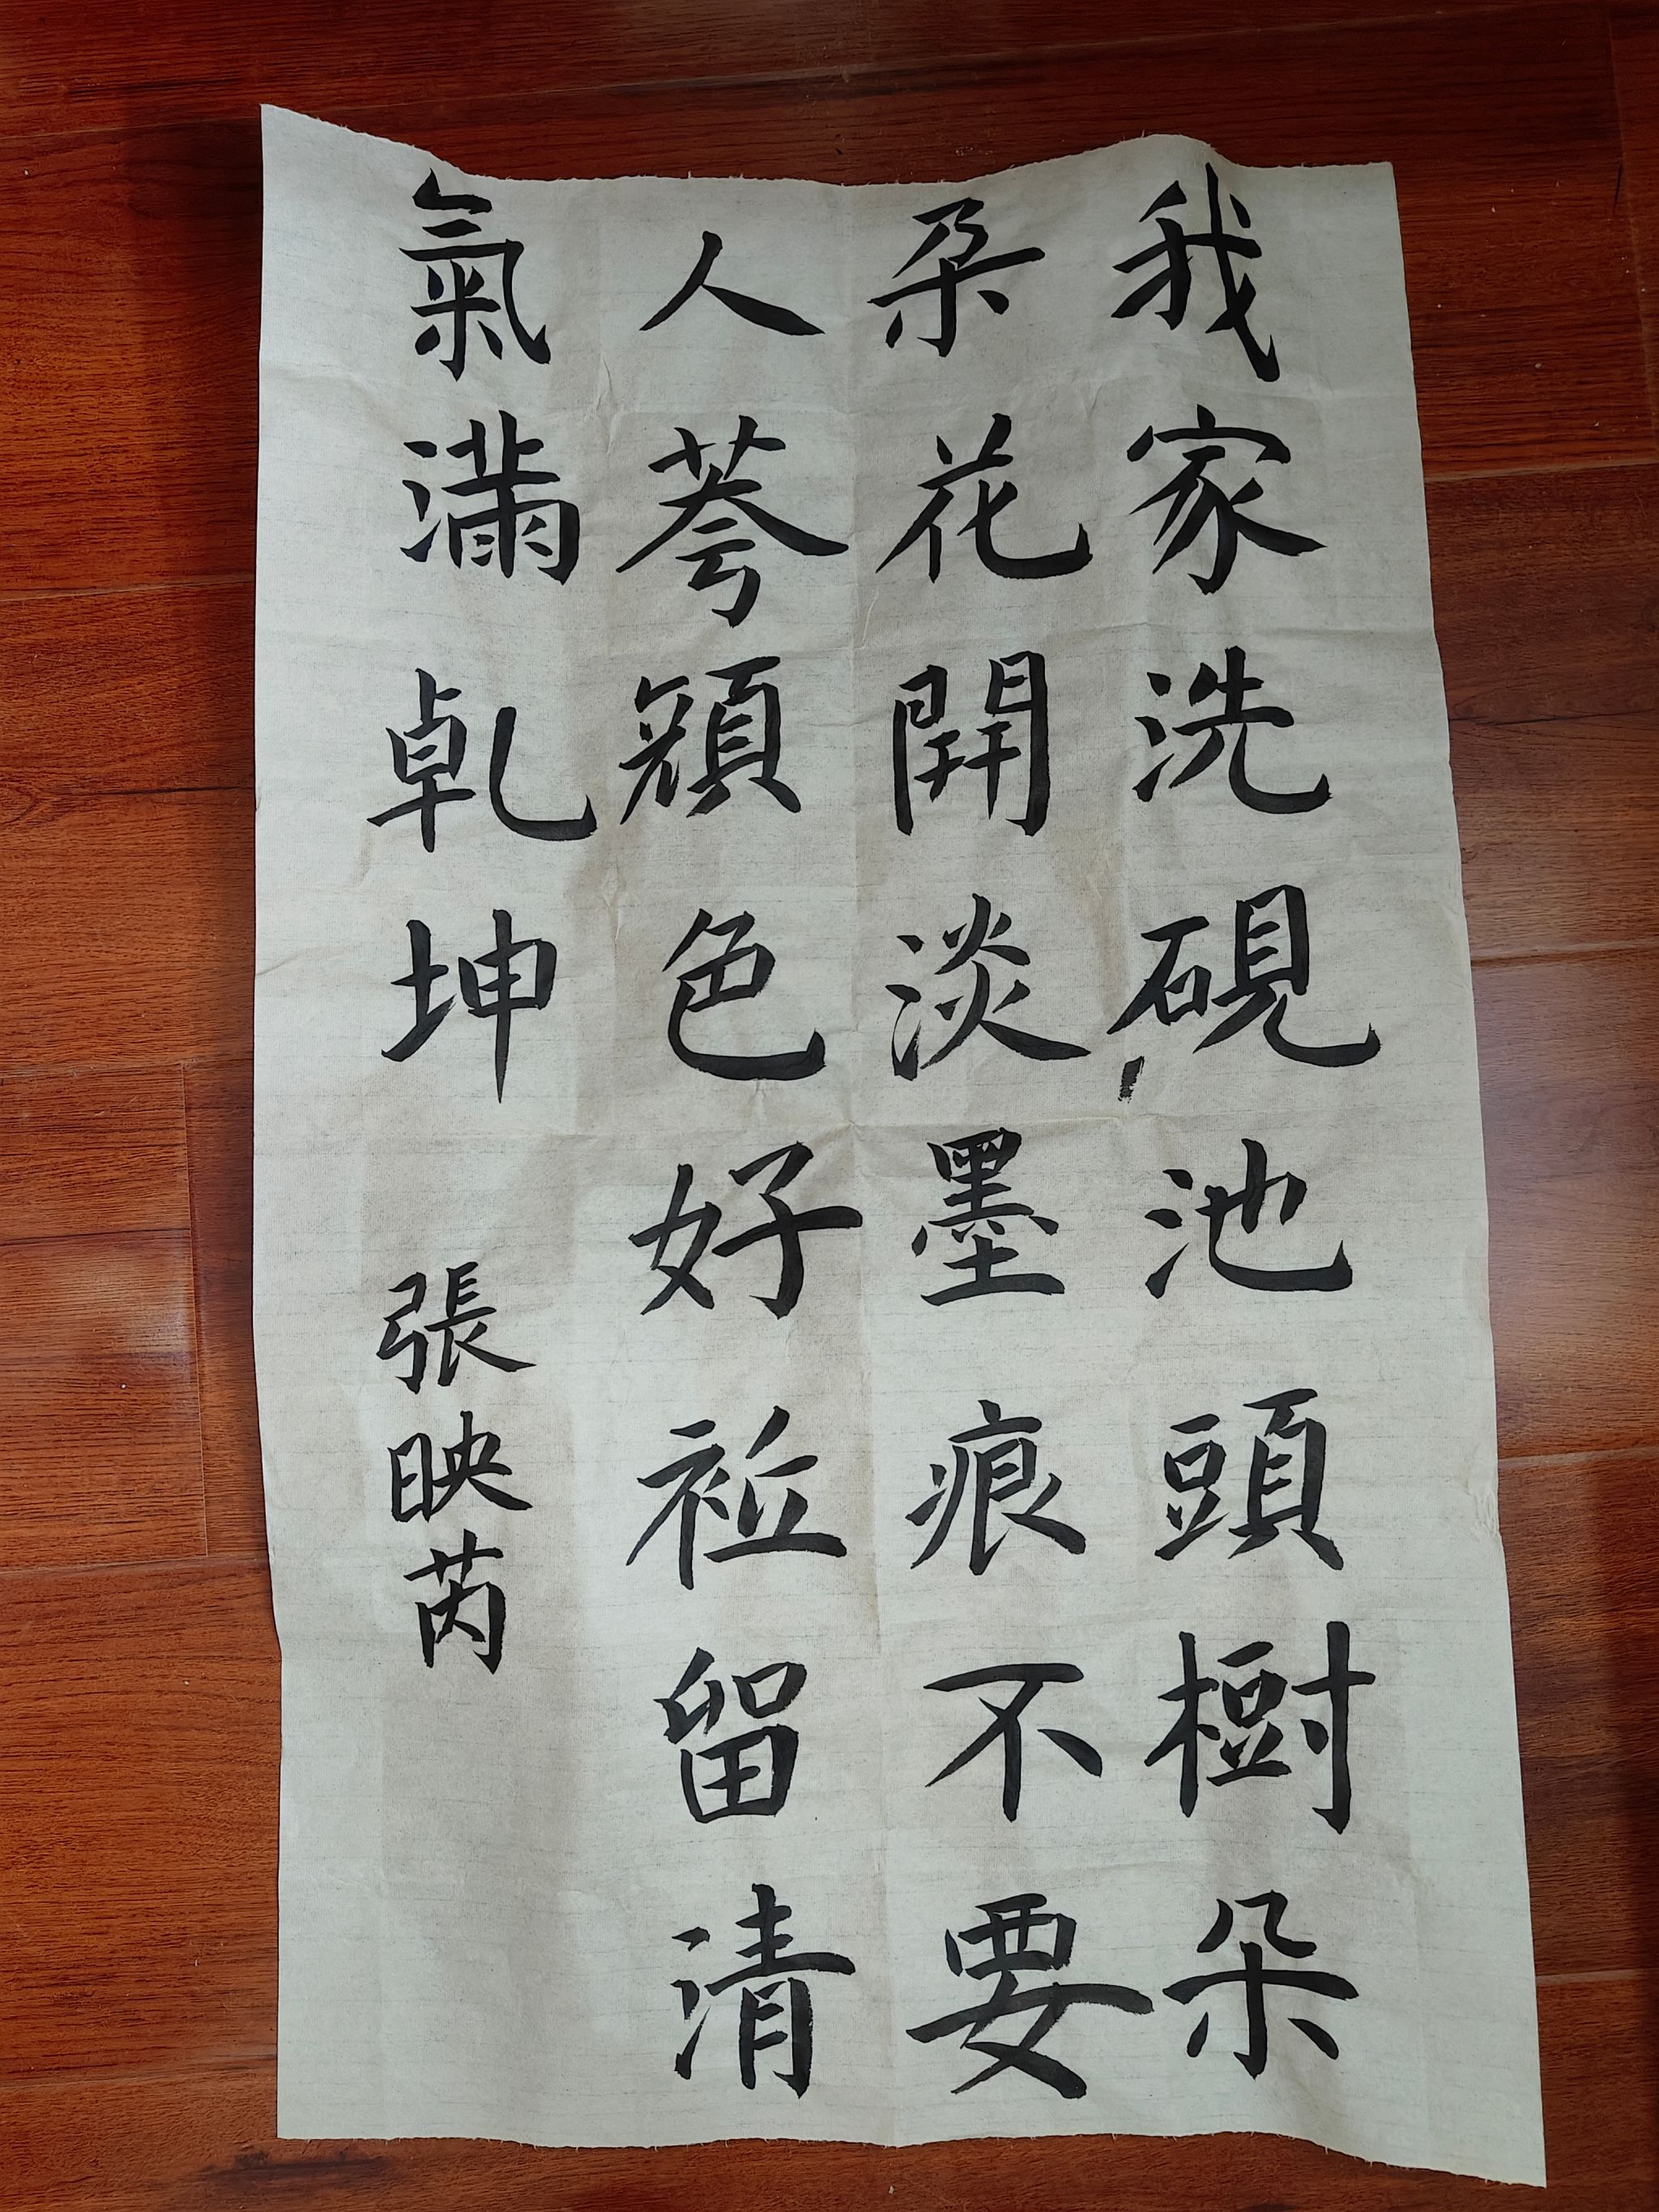 我家洗硯池頭樹朵
朶花開淡墨痕不要
人荂顔色好祇留清
氣滿乹坤
張映芮